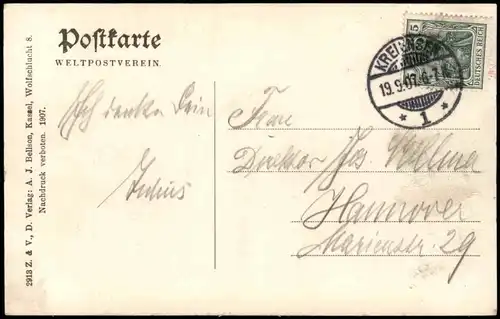 Postkarte
WELTPOSTVEREIN.
2913 Z. & V., D. Verlag: A. J. Bellson, Kassel, Wolfsschlucht 8.
Nachdruck verboten. 1907.
Ich denke Dein
Julius
KREIENSEN
19.9.07. 6-7 N.
* 1 *
5
DEUTSCHES REICH
Frau
Direktor Jos.
Hannover
Marienstr. 29